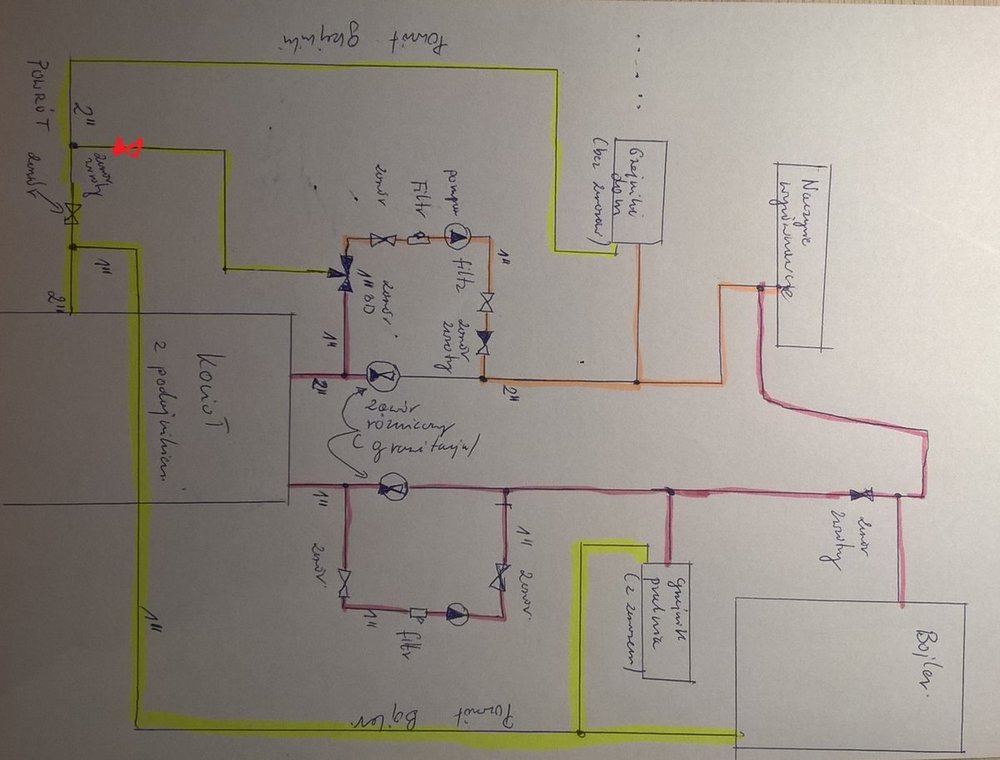 Powrót grzejniki
POWRÓT
2"
zawór
zwrotny
zawór
1"
2"
Kocioł
z podajnikiem
zawór
Filtr
pompa
filtr
1"
zawór
1" 3D
1"
2"
zawór
zwrotny
2"
zawór
różnicowy
Grawitacja
Grzejniki
dom
(bez zaworów)
Naczynie
wyrównawcze
1"
zawór
1"
filtr
1"
zawór
zawór
zwrotny
grzejnik
pralnia
(z zaworem)
Bojler
Powrót
Bojler
1"